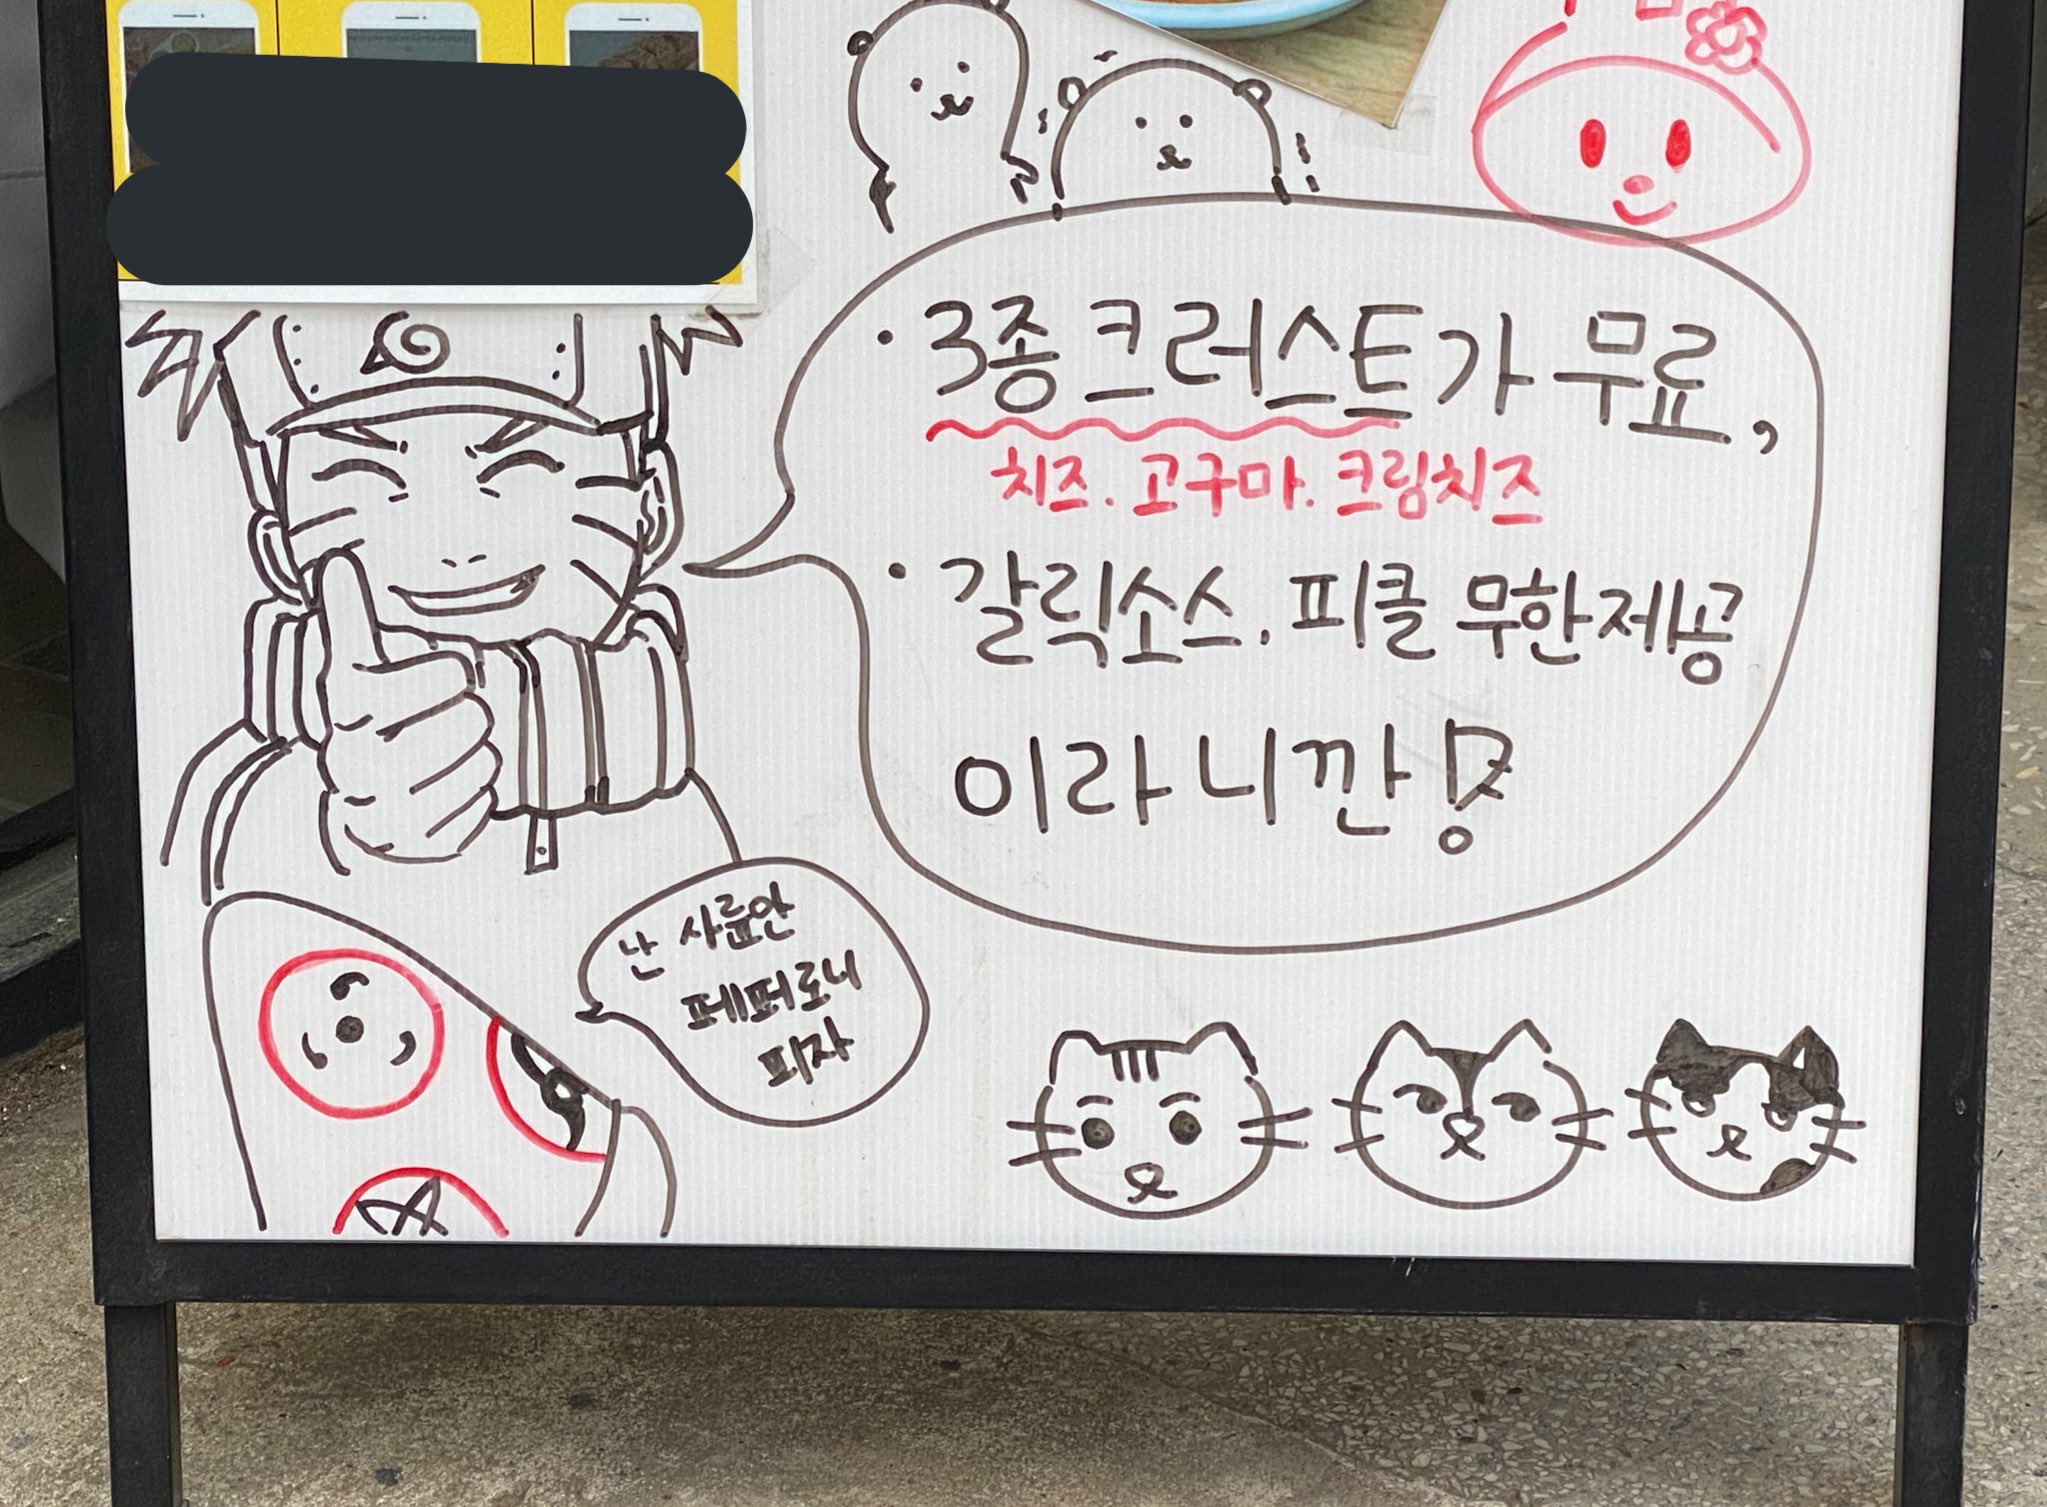 · 3종 크러스트가 무료,
치즈. 고구마. 크림치즈
· 갈릭소스. 피클 무한제공
이라니깐!
난 사륜안
페퍼로니
피자